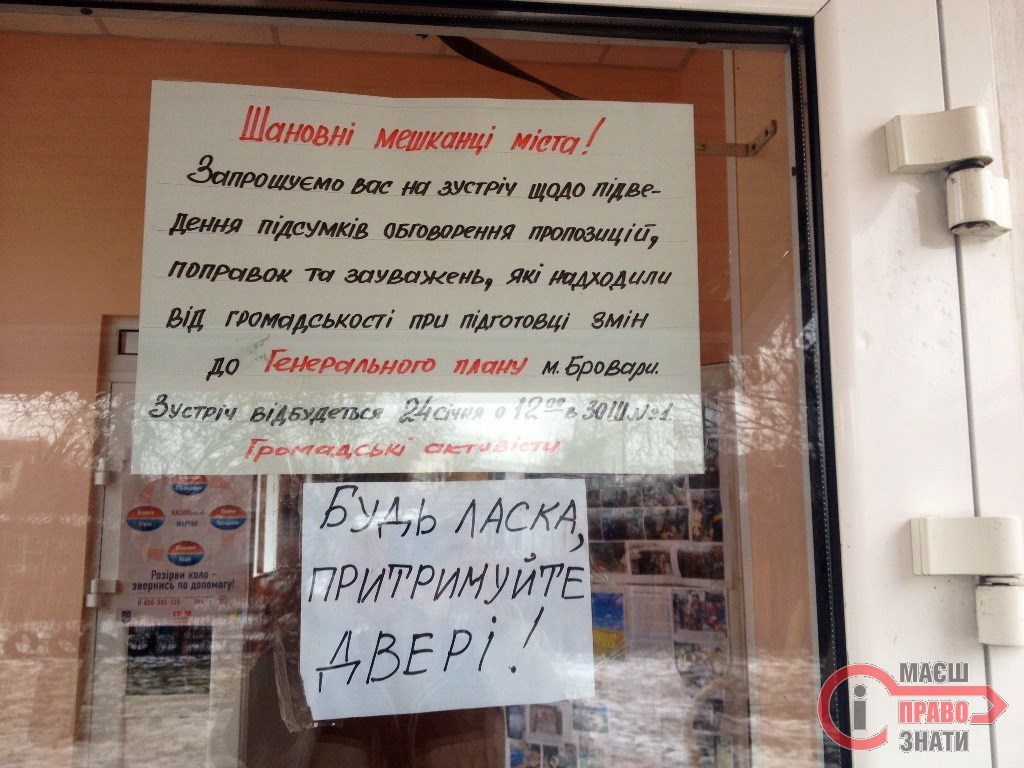 Шановні мешканці міста!
Запрошуємо вас на зустріч щодо підве-
дення підсумків обговорення пропозицій,
поправок та зауважень, які надходили
від громадськості при підготовці змін
до Генерального плану м. Бровари.
Зустріч відбудеться 24 січня о 12 00 в ЗОШ №1
Громадські активісти
БУДЬ ЛАСКА,
ПРИТРИМУЙТЕ
ДВЕРІ!
Розірви коло -
звернись по допомогу!
МАЄШ
ПРАВО
ЗНАТИ